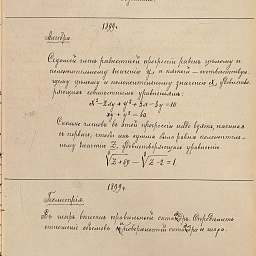 1899.
Алгебра.
Седьмой членъ разностной прогрессіи равенъ цѣлому и
положительному значенію y, а пятый – соотвѣтствую-
щему цѣлому и положительному значенію x, удовлетво-
ряющихъ совмѣстнымъ уравненіямъ:
x² – 2xy + y² + 3x – 3y = 10
xy + y² = 80
Сколько членовъ въ этой прогрессіи надо взять, начиная
съ перваго, чтобы ихъ сумма была равна положительно-
му значенію Z, удовлетворяющую уравненію.
Z + 69 – Z – 2 = 1.
1899.
Геометрія.
Въ шаръ вписанъ правильный октаэдръ. Опредѣлить
отношеніе объемовъ и поверхностей октаэдра и шара.